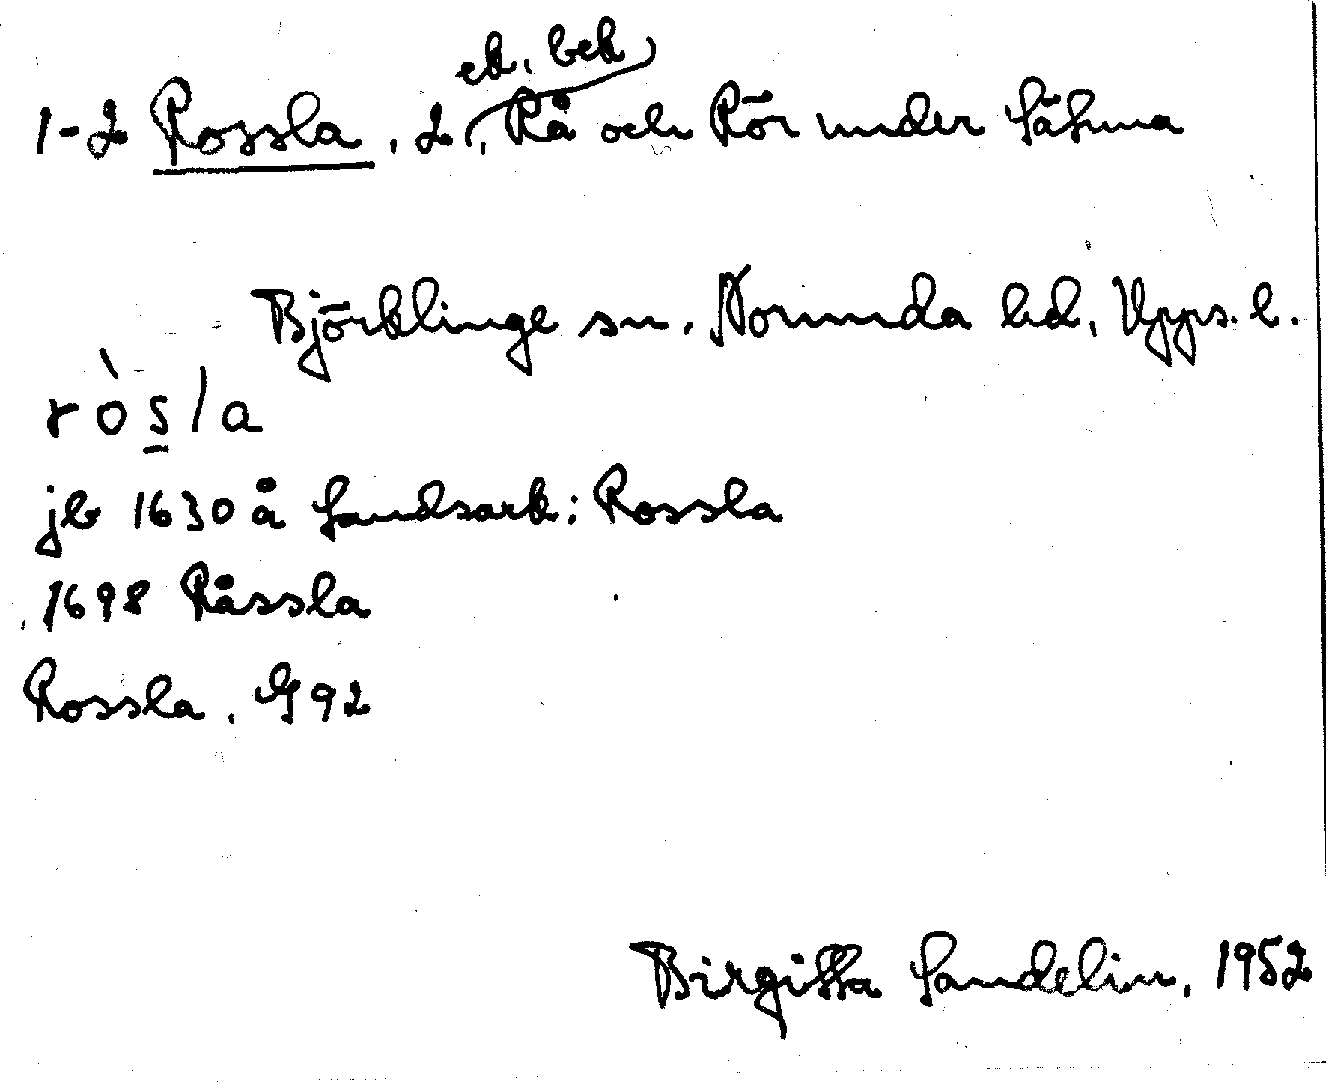 ek. bek
1-2 Rossla, 2, Rå och Rör under Sätuna
Björklinge sn. Norunda hd. Upps. l.
ròs̲la
jb 1630 å Landsark: Rossla
1698 Råssla
Rossla, G 92
Birgitta Sandelin, 1952